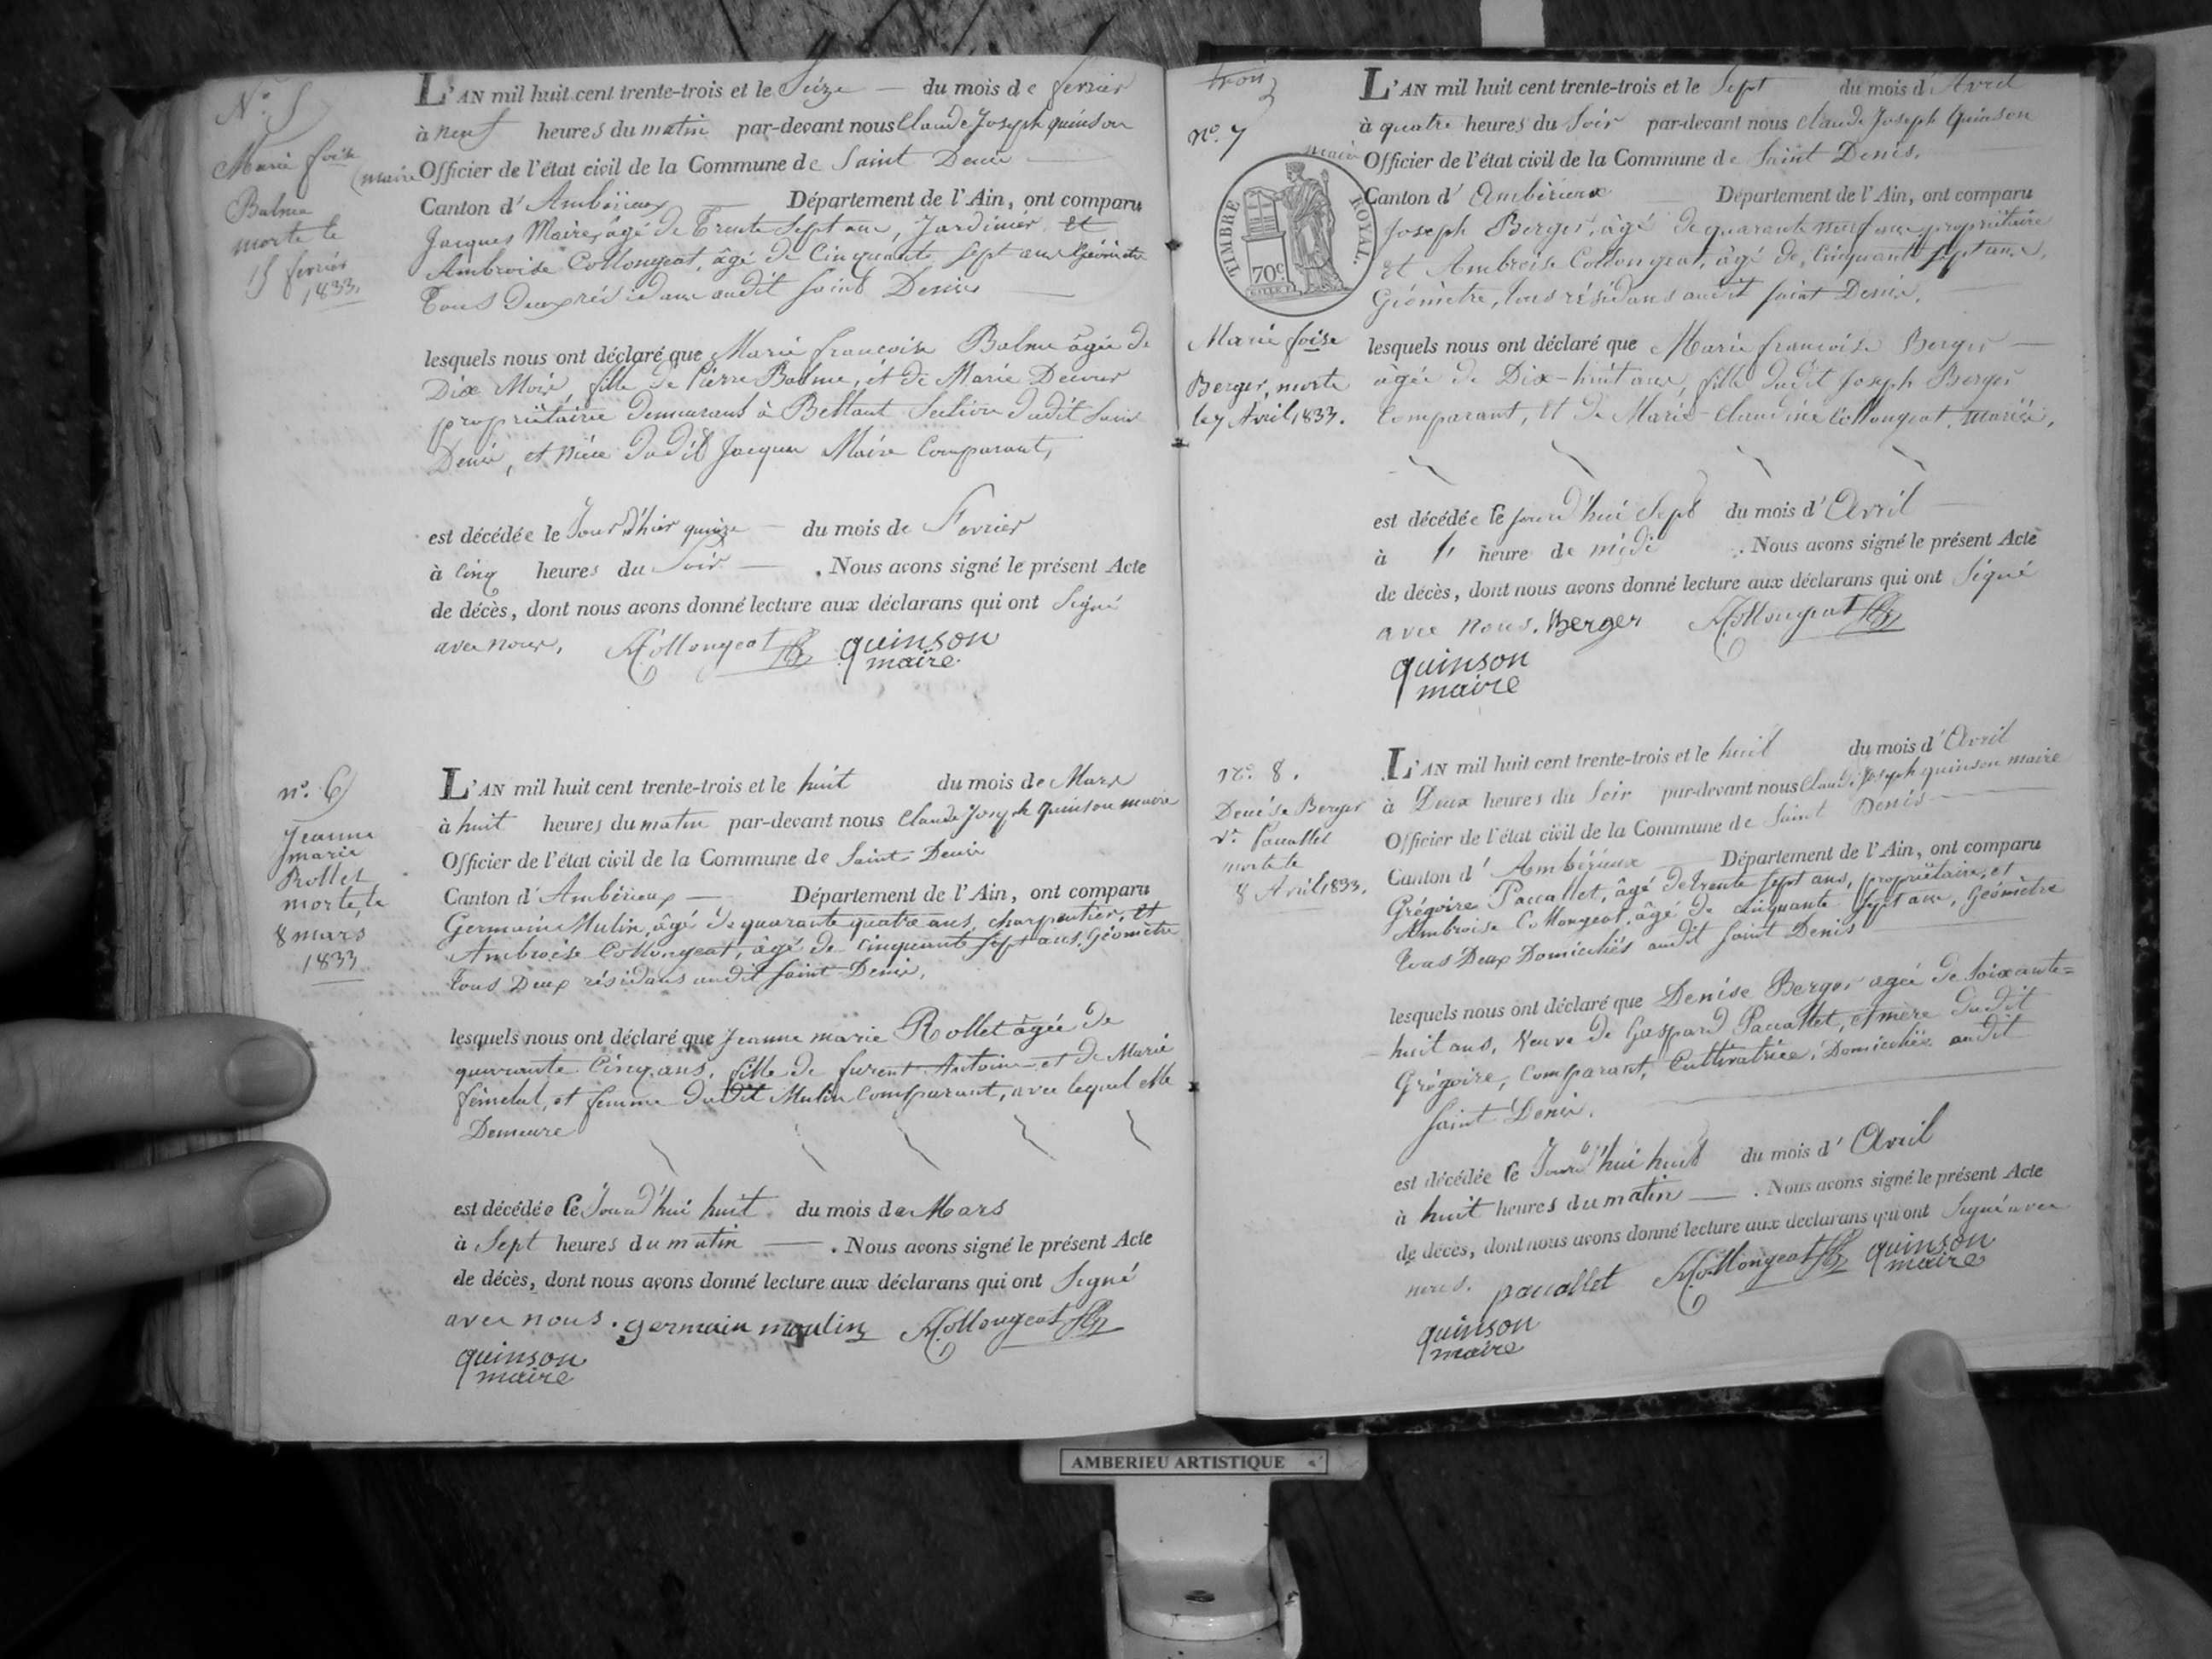 N.° 5
Marie foise
Balme
morte le
15 fevrier
1833.
L'AN mil huit cent trente-trois et le Seize — du mois de fevrier
à neuf heures du matin par-devant nous Claude Joseph quinson
(maire Officier de l'état civil de la Commune de Saint Denis —
Canton d'Ambérieux — Département de l'Ain, ont comparu
Jacques Maire, âgé de Trente Sept ans, Jardinier et
Ambroise Collongeat, âgé de Cinquante Sept ans Géomètre
Tous deux résidans audit Saint Denis —
lesquels nous ont déclaré que Marie francoise Balme âgée de
Dix Mois, fille de Pierre Balme, et de Marie
propriétaire demeurant à Bettant Section dudit Saint
Denis, et nièce dudit Jacques Maire Comparant,
est décédée le Jour d'hier quinze — du mois de Fevrier
à Cinq heures du Soir — . Nous avons signé le présent Acte
de décès, dont nous avons donné lecture aux déclarans qui ont Signé
avec nous. Collongeat quinson
maire
n.° 6
Jeanne
marie
Rollet
morte le
8 mars
1833
L'AN mil huit cent trente-trois et le huit du mois de Mars
à huit heures du matin par-devant nous Claude Joseph quinson maire
Officier de l'état civil de la Commune de Saint Denis
Canton d'Ambérieux — Département de l'Ain, ont comparu
Germain Mulin, âgé de quarante quatre ans, charpentier, et
Ambroise Collongeat, âgé de Cinquante Sept ans, Géomètre
Tous Deux résidans audit Saint Denis,
lesquels nous ont déclaré que Jeanne marie Rollet âgée de
quarante Cinq ans, fille de furent Antoine et de Marie
et femme dudit Mulin Comparant, avec lequel elle
Demeure
est décédée Ce Jourd'hui huit du mois de Mars
à Sept heures du matin — . Nous avons signé le présent Acte
de décès, dont nous avons donné lecture aux déclarans qui ont Signé
avec nous. germain moulin Collongeat
quinson
maire
trois
n.° 7
TIMBRE ROYAL.
70c
Marie foise
Berger, morte
le 7 Avril 1833.
L'AN mil huit cent trente-trois et le Sept du mois d'Avril
à quatre heures du Soir par-devant nous Claude Joseph Quinson
maire Officier de l'état civil de la Commune de Saint Denis.
Canton d'Ambérieux Département de l'Ain, ont comparu
Joseph Berger, âgé de quarante neuf ans propriétaire
et Ambroise Collongeat, âgé de Cinquante Sept ans,
Géomètre, tous résidans audit Saint Denis.
lesquels nous ont déclaré que Marie françoise Berger —
âgée de Dix-huit ans, fille dudit Joseph Berger
Comparant, et de Marie-Claudine Collongeat, mariés,
est décédée Ce jourd'hui Sept du mois d'Avril —
à 1 heure de midi . Nous avons signé le présent Acte
de décès, dont nous avons donné lecture aux déclarans qui ont Signé
avec nous. Berger Collongeat
quinson
maire
n.° 8.
Denise Berger
Ve Paccallet
morte le
8 Avril 1833.
L'AN mil huit cent trente-trois et le huit du mois d'Avril
à Deux heures du Soir par-devant nous Claude Joseph quinson maire
Officier de l'état civil de la Commune de Saint Denis —
Canton d'Ambérieux — Département de l'Ain, ont comparu
Grégoire Paccallet, âgé de trente Sept ans, propriétaire, et
Ambroise Collongeat, âgé de cinquante Sept ans, Géomètre
Tous Deux Domiciliés audit Saint Denis
lesquels nous ont déclaré que Denise Berger agée de Soixante=
huit ans, Veuve de Gaspard Paccallet, et mère dudit
Grégoire, Comparant, Cultivatrice, Domiciliée audit
Saint Denis.
est décédée Ce Jourd'hui huit du mois d'Avril
à huit heures du matin — . Nous avons signé le présent Acte
de décès, dont nous avons donné lecture aux déclarans qui ont Signé avec
nous. paccallet Collongeat quinson
maire
quinson
maire
AMBERIEU ARTISTIQUE